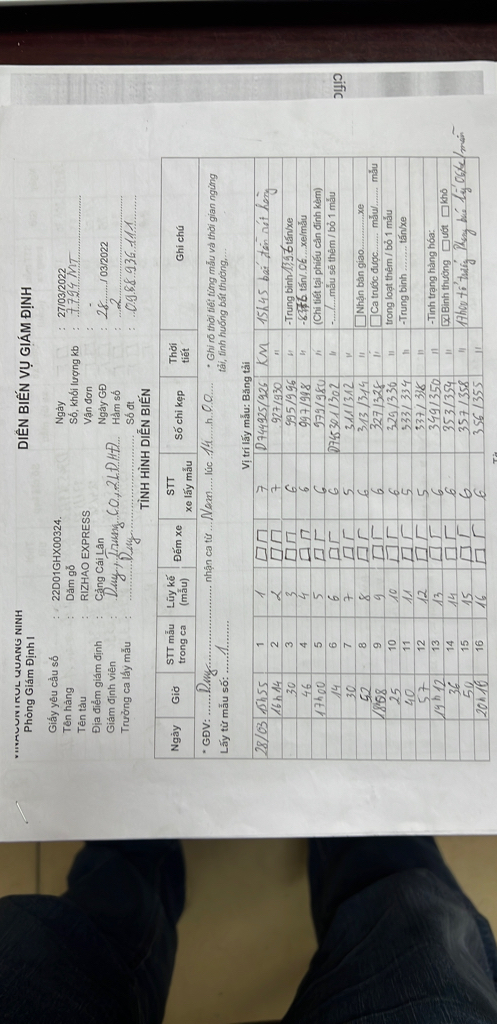 cific
VINACONTROL QUẢNG NINH
Phòng Giám Định I
DIỄN BIẾN VỤ GIÁM ĐỊNH
Giấy yêu cầu số : 22D01GHX00324. Ngày : 27/03/2022
Tên hàng : Dăm gỗ Số, khối lượng kb : 7.794 MT
Tên tàu : RIZHAO EXPRESS Vận đơn :
Địa điểm giám định : Cảng Cái Lân Ngày GĐ : 28...../03/2022
Giám định viên : Duy, Trung, CO, 2LĐHĐ Hầm số : 2
Trưởng ca lấy mẫu : Duy Số đt : 0988 936 111
TÌNH HÌNH DIỄN BIẾN
Ngày Giờ STT mẫu trong ca Lũy kế (mẫu) Đếm xe STT xe lấy mẫu Số chì kẹp Thời tiết Ghi chú
* GĐV: Duy nhận ca từ Nam lúc 14 h 00 * Ghi rõ thời tiết từng mẫu và thời gian ngừng
Lấy từ mẫu số: 1 tải, tình huống bất thường,...
Vị trí lấy mẫu: Băng tải
28/03 15h55 1 1 7 D744925/926 KM 15h45 bắt đầu rót hàng
16h14 2 2 7 927/930 "
30 3 3 6 995/996 " -Trung bình tấn/xe
46 4 4 6 997/998 " tấn/.06 xe/mẫu
17h00 5 5 6 979/980 " (Chi tiết tại phiếu cân đính kèm)
14 6 6 6 " -..../....mẫu sẽ thêm / bỏ 1 mẫu
30 7 7 5 311/312 "
52 8 8 6 313/314 " Nhận bàn giao.........xe
9 9 6 " Ca trước được........ mẫu/........ mẫu
25 10 10 6 329/330 " trong loạt thêm / bỏ 1 mẫu
40 11 11 5 333/334 " -Trung bình..........tấn/xe
57 12 12 5 "
19h12 13 13 6 349/350 " -Tình trạng hàng hóa:
36 14 14 6 353/354 " ☒ Bình thường ☐ ướt ☐ khô
54 15 15 6 357/358 "
20h10 16 16 6 356/355 "